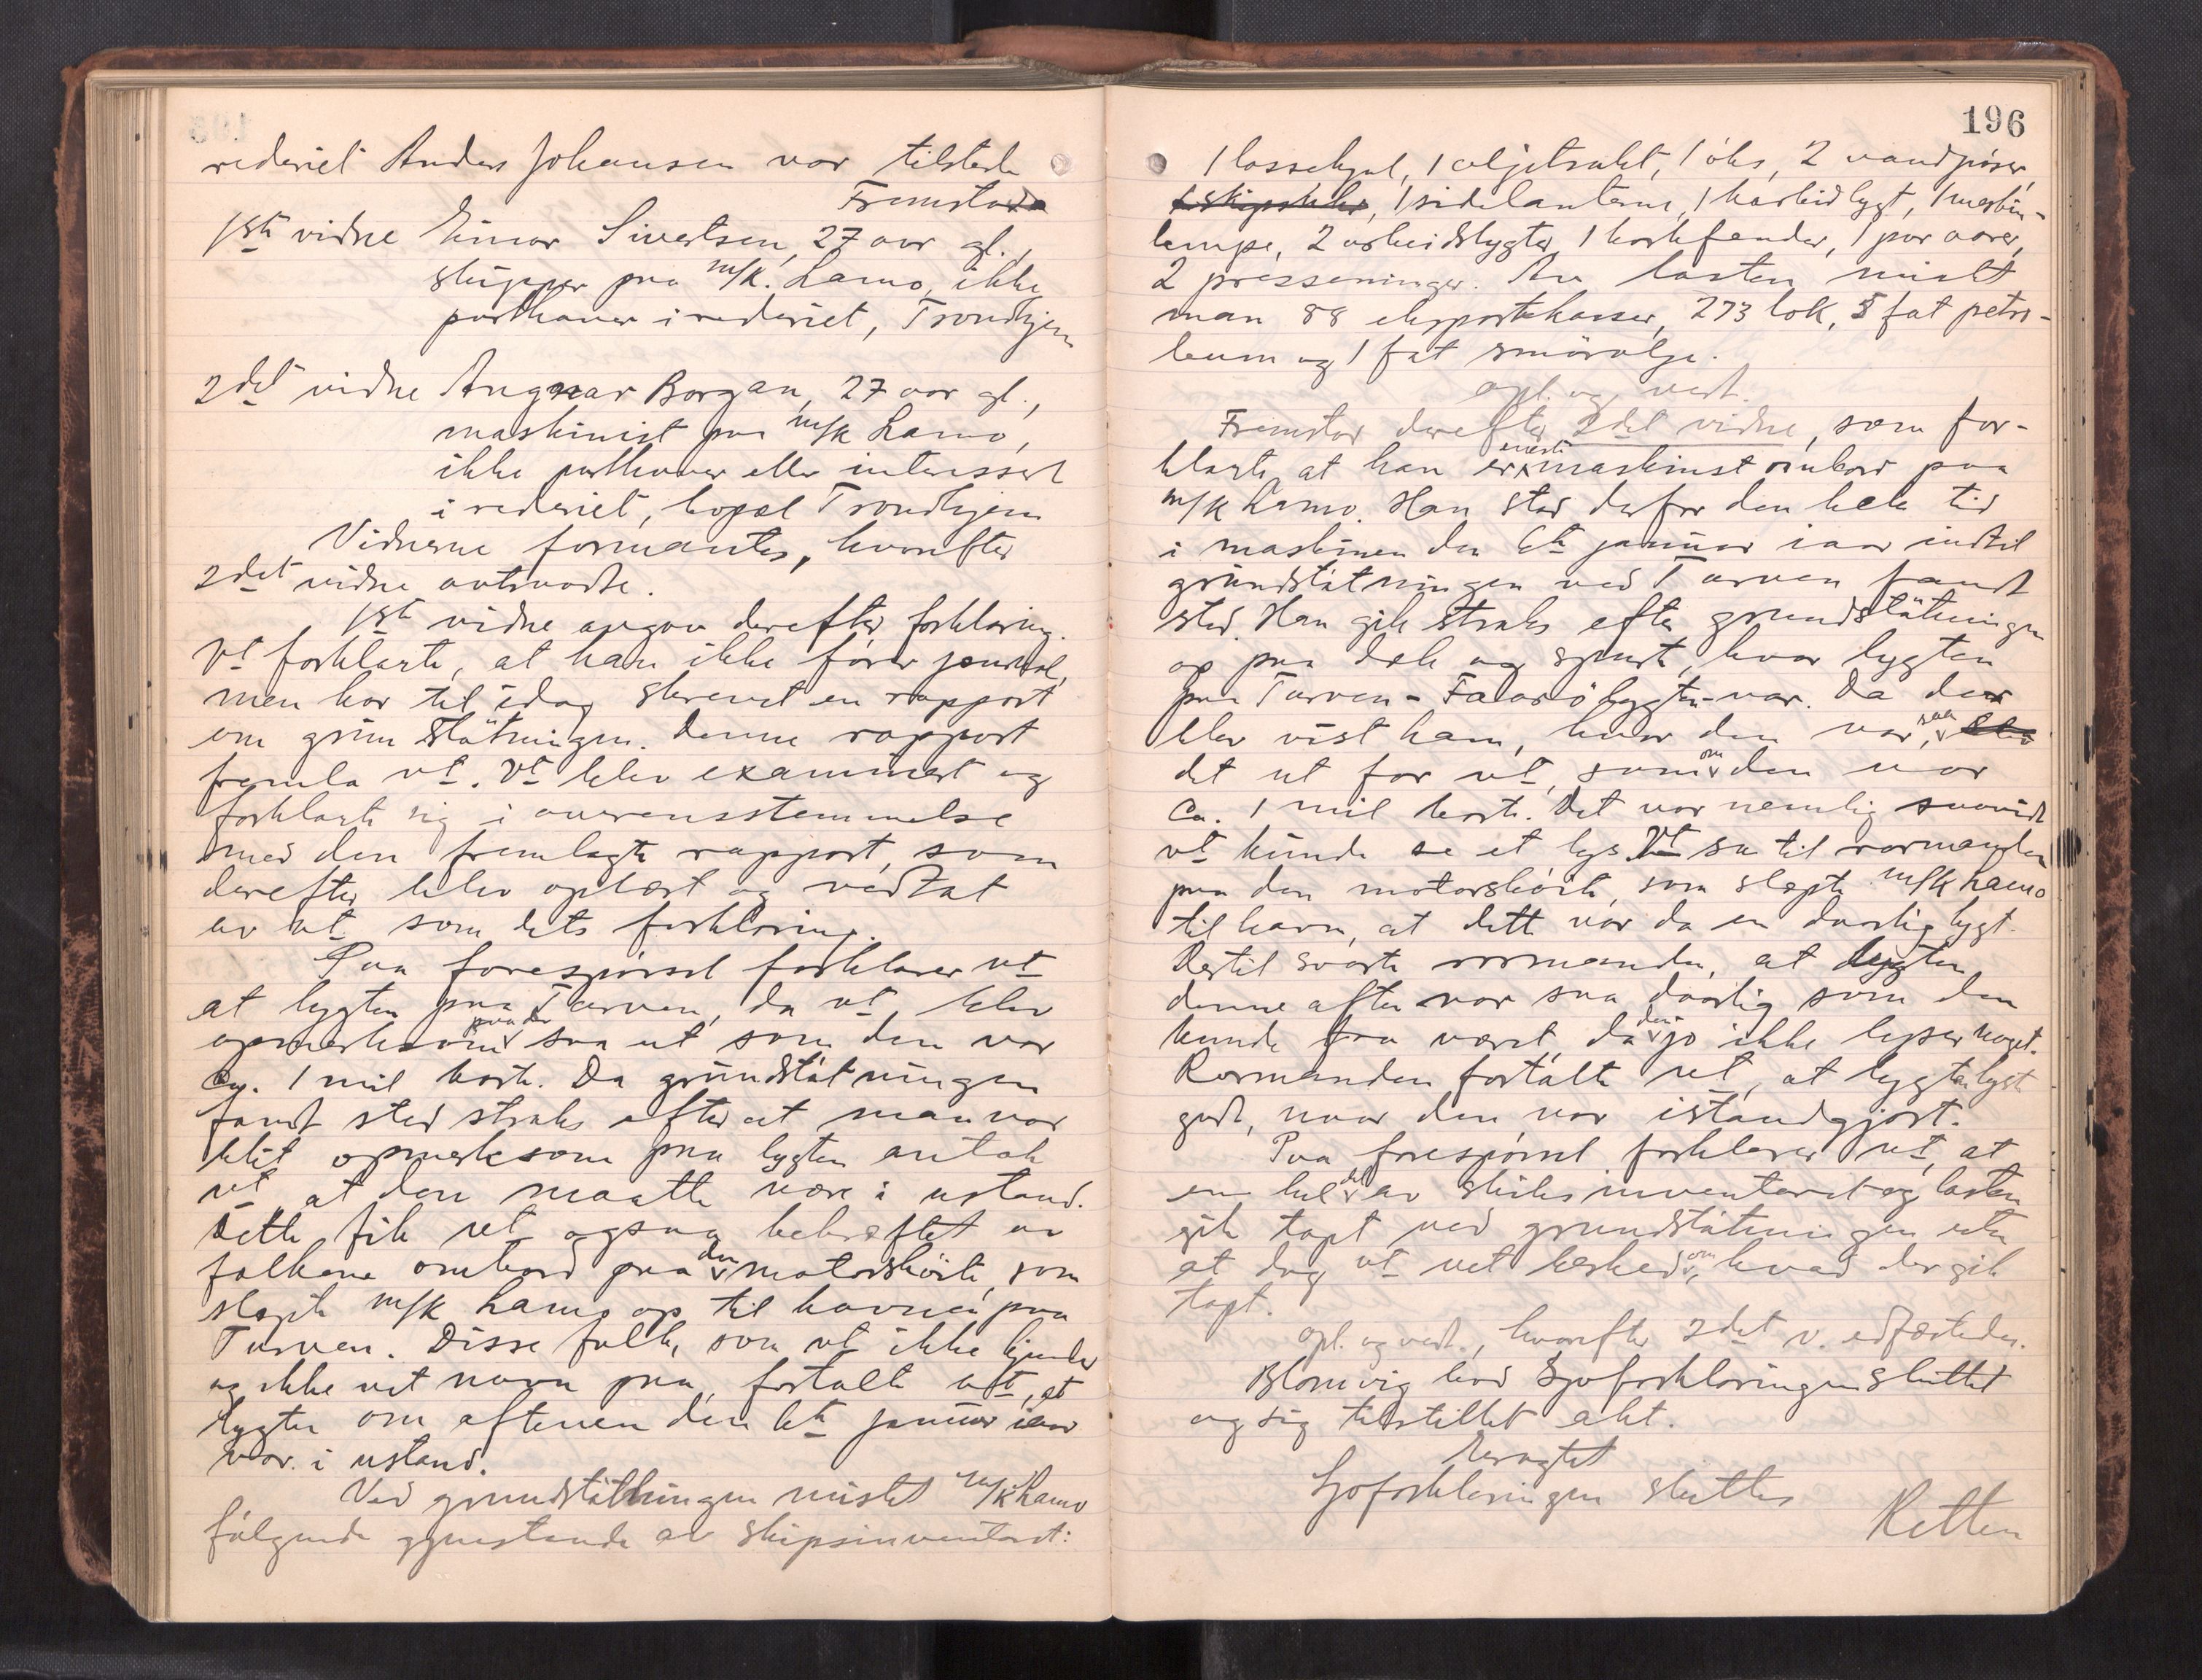 rederiet Anders Johansen var tilstede
Fremstod
1ste vidne Einar Sivertsen, 27 aar gl.,
skipper paa m/k. Lamo, ikke
parthaver i rederiet, Trondhjem
2det vidne Angmar Borgan, 27 aar gl.,
maskinist paa m/k Lamo,
ikke parthaver eller interessert
i rederiet, bopæl Trondhjem
Vidnerne formantes, hvorefter
2det vidne avtraadte.
1ste vidne avgav derefter forklaring.
Vt forklarte, at han ikke fører journal,
men har til idag skrevet en rapport
om grundstøtningen. Denne rapport
fremla vt. Vt blev examinert og
forklarte sig i overensstemmelse
med den fremlagte rapport, som
derefter blev oplæst og vedtat
av vt som dets forklaring.
Paa forespørsel forklarer vt
at lygten paa Tarven, da vt blev
opmerksom paa den saa ut som den var
ca. 1 mil borte. Da grundstøtningen
fandt sted straks efter at man var
blit opmerksom paa lygten antok
vt at den maatte være i ustand.
Dette fik vt ogsaa bekræftet av
folkene ombord paa den motorskøite, som
slæpte m/k Lamo op til havnen paa
Tarven. Disse folk, som vt ikke kjender
og ikke vet navn paa, fortalte vt, at
lygten om aftenen den 6te januar iaar
var i ustand.
Ved grundstøtningen mistet m/k Lamo
følgende gjenstande av skipsinventaret:
196
1 lossehjul, 1 oljetrakt, 1 øks, 2 vandpøser,
1 sidelanterne, 1 karbidlygt, 1 maskin-
lampe, 2 arbeidslygter, 1 korkfender, 1 par aarer,
2 presseninger. Av lasten mistet
man 88 eksportkasser, 273 lok, 5 fat petro-
leum og 1 fat smørolje.
opl. og vedt.
Fremstod derefter 2det vidne, som for-
klarte at han er eneste maskinist ombord paa
m/k Lamo. Han stod derfor den hele tid
i maskinen den 6te januar iaar indtil
grundstøtningen ved Tarven fandt
sted. Han gik straks efter grundstøtningen
op paa dæk og spurte, hvor lygten
paa Tarven - Faarølygten - var. Da der
blev vist ham, hvor den var, saa
det ut for vt, som om den var
ca. 1 mil borte. Det var nemlig saavidt
vt kunde se et lys. Vt sa til rormanden
paa den motorskøite, som slæpte m/k Lamo
til havn, at dette var da en daarlig lygt.
Dertil svarte rormanden, at lygten
denne aften var saa daarlig som den
kunde faa været, da den jo ikke lyser noget.
Rormanden fortalte vt, at lygten lyste
godt, naar den var istandgjort.
Paa forespørsel forklarer vt, at
en hel del av skibsinventaret og lasten
gik tapt ved grundstøtningen uten
at dog vt vet besked om, hvad der gik
tapt.
opl. og vedt., hvorefter 2det v. edfæstedes.
Blomvig bad Sjøforklaringen sluttet
og sig tilstillet akt.
Beragtet
Sjøforklaringen sluttes
Retten